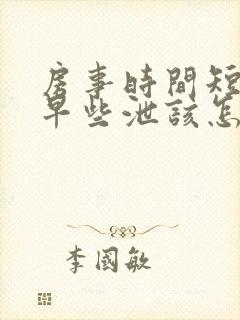 房事時間短
早些泄該怎
李國敏